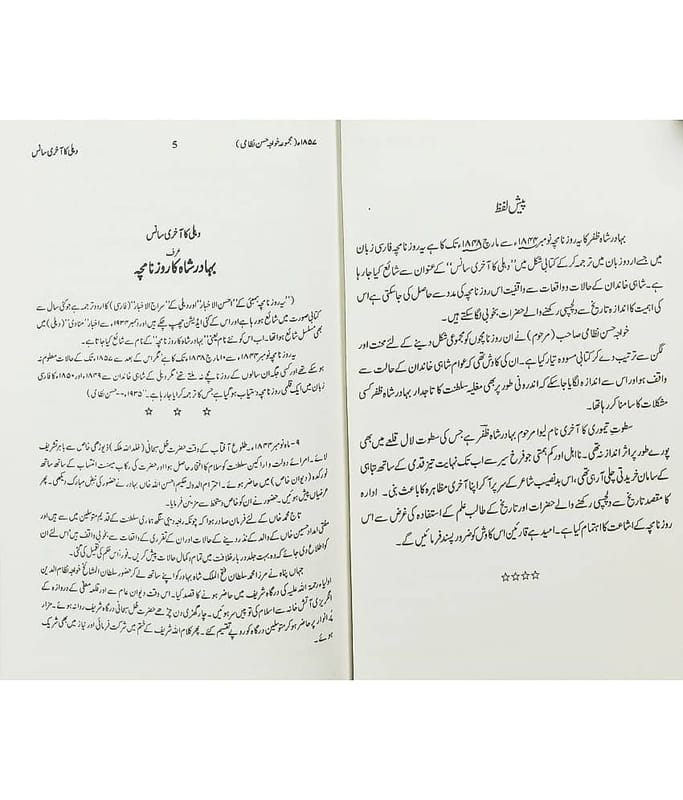 پیش لفظ
بہادر شاہ ظفر کا یہ روزنامچہ نومبر ۱۸۴۴ء سے مارچ ۱۸۴۸ء تک کا ہے یہ روزنامچہ فارسی زبان
میں جسے اردو زبان میں ترجمہ کر کے کتابی شکل میں "دہلی کا آخری سانس" کے عنوان سے شائع کیا جا رہا
ہے۔ شاہی خاندان کے حالات و واقعات سے واقفیت اس روزنامچہ کی مدد سے حاصل کی جا سکتی ہے اس
کی اہمیت کا اندازہ تاریخ سے دلچسپی رکھنے والے حضرات بخوبی لگا سکتے ہیں۔
خواجہ حسن نظامی صاحب (مرحوم) نے ان روزنامچوں کو مجموعی شکل دینے کے لئے محنت اور
لگن سے ترتیب دے کر کتابی مسودہ تیار کیا ہے۔ ان کی کاوش تھی کہ عوام شاہی خاندان کے حالت سے
واقف ہو اور اس سے اندازہ لگایا جا سکے کہ اندرونی طور پر بھی مغلیہ سلطنت کا تاجدار بہادر شاہ ظفر کسی
مشکلات کا سامنا کر رہا تھا۔
سطوتِ تیموری کا آخری نام لیوا مرحوم بہادر شاہ ظفر ہے جس کی سطوت لال قلعے میں بھی
پورے طور پر اثر انداز نہ تھی۔ نا اہل اور کم ہمتی جو فرخ سیر سے اب تک نہایت تیز قدمی کے ساتھ تباہی
کے سامان خریدتی چلی آ رہی تھی، اس بد نصیب شاعر کے سر پر آ کر اپنا آخری مظاہرہ کا باعث بنی۔ ادارہ
کا مقصد تاریخ سے دلچسپی رکھنے والے حضرات اور تاریخ کے طالب علم کے استفادہ کی غرض سے اس
روزنامچہ کے اشاعت کا اہتمام کیا ہے۔ امید ہے قارئین اس کاوش کو ضرور پسند فرمائیں گے۔
☆☆☆☆
۱۸۵۷ء (مجموعہ خواجہ حسن نظامی) 5 دہلی کا آخری سانس
دہلی کا آخری سانس
عرف
بہادر شاہ کا روزنامچہ
("یہ روزنامچہ بمبئی کے" احسن الاخبار "اور دہلی کے" سراج الاخبار" (فارسی) کا اردو ترجمہ ہے جو کئی سال سے
کتابی صورت میں شائع ہو رہا ہے اور اس کے کئی ایڈیشن چھپ چکے ہیں اور دسمبر ۱۹۳۴ء سے اخبار "منادی" (دہلی) میں
بھی مسلسل شائع ہوا تھا۔ اب اس کو نئے نام یعنی "بہادر شاہ کا روزنامچہ" کے نام سے شائع کیا جاتا ہے۔
یہ روزنامچہ نومبر ۱۸۴۴ء سے ۱۰ مارچ ۱۸۴۸ء تک کا ہے مگر اس کے بعد سے ۱۸۵۷ء تک کے حالات معلوم نہ
ہو سکے تھے اور کسی جگہ ان سالوں کے روزنامچے نہ ملتے تھے مگر دہلی کے شاہی خاندان سے ۱۸۴۹ء اور ۱۸۵۰ء کا فارسی
زبان میں ایک قلمی روزنامچہ دستیاب ہو گیا ہے جس کا ترجمہ کرایا جا رہا ہے۔ ۱۹۳۵ء--حسن نظامی)
☆ ☆ ☆
۹- ماہ نومبر ۱۸۴۴ء- طلوع آفتاب کے وقت حضرت ظلِ سبحانی (خلد اللہ ملکہ) ڈیوڑھی خاص سے باہر تشریف
لائے۔ امرائے دولت و اراکین سلطنت کو سلام کا افتخار حاصل ہوا اور حضرت کی رکاب میمنت انتساب کے ساتھ ساتھ
نور کدہ (دیوان خاص) میں حاضر ہوئے۔ احترام الدولہ حکیم احسن اللہ خاں بہادر نے حضور کی نبض مبارک دیکھی۔ پھر
عرضیاں پیش ہوئیں۔ حضور نے ان کو خاص دستخط سے مزین فرمایا۔
تاج محمد خاں کے لئے فرمان صادر ہوا کہ چونکہ راجہ دہی سنگھ ہماری سلطنت کے قدیم متوسلین میں سے ہیں اور
مفتی امداد حسین خاں کے والد کے نذر و دینے کے حالات اور ان کے تقرری کے واقعات سے بخوبی واقف ہیں اس لئے ان
کو اطلاع دی جائے کہ وہ بہت جلد دربار خلافت میں تمام و کمال حالات پیش کریں۔ فوراً اس حکم کی تعمیل کی گئی۔
جہاں پناہ نے مرزا محمد سلطان فتح الملک شاہ بہادر کو اپنے ساتھ لے کر حضور سلطان المشائخ خواجہ نظام الدین
اولیاء رحمتہ اللہ علیہ کی درگاہ شریف میں حاضر ہونے کا قصد کیا۔ اس وقت دیوان عام سے اور قلعہ معلی کے دروازہ کے
انگریزی آتش خانہ سے اسلام کی توپیں سر ہوئیں۔ چار گھڑی دن چڑھے حضرت ظل سبحانی درگاہ شریف روانہ ہوئے۔ مزار
پر انوار پر حاضر ہو کر متوسلین درگاہ کو روپے تقسیم کئے۔ پھر کلام اللہ شریف کے ختم میں شرکت فرمائی اور نیاز میں بھی شریک
ہوئے۔